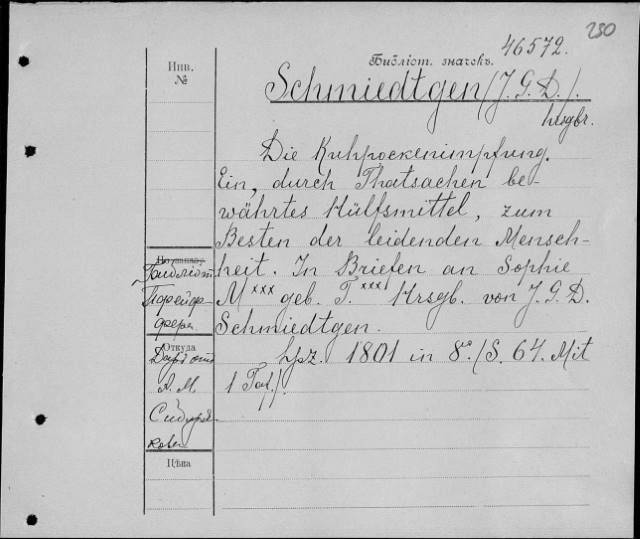 250
46572.
Библіот. значокъ.
Инв.
№
Schmiedtgen /J. G. D./.
hrsgbr.
Die Kuhpockenimpfung.
Ein, durch Thatsachen be-
währtes Hülfsmittel, zum
Besten der leidenden Mensch-
heit. In Briefen an Sophie
M xxx geb. T. xxx Hrsgb. von J. G. D.
Schmiedtgen.
Lpz. 1801 in 8°. /S. 64. Mit
1 Taf./.
Библіот.
Порфир.
Откуда
Даръ отъ
А. М.
Сибиря-
кова
Цѣна